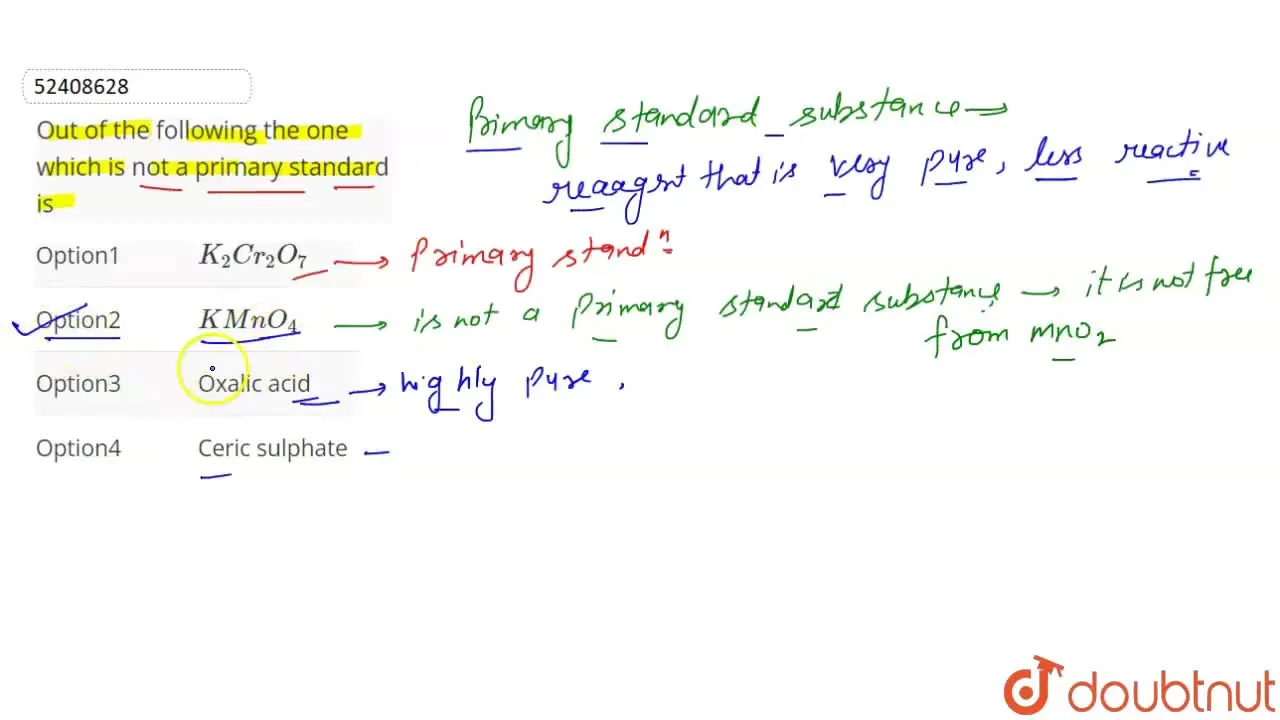 52408628
Out of the following the one
which is not a primary standard
is
Primary standard substance →
reaagent that is very pure, less reactive
Option1 K₂Cr₂O₇ → Primary standⁿ
Option2 KMnO₄ → is not a primary standard substance → it is not free
from MnO₂
Option3 Oxalic acid → highly pure,
Option4 Ceric sulphate –
doubtnut